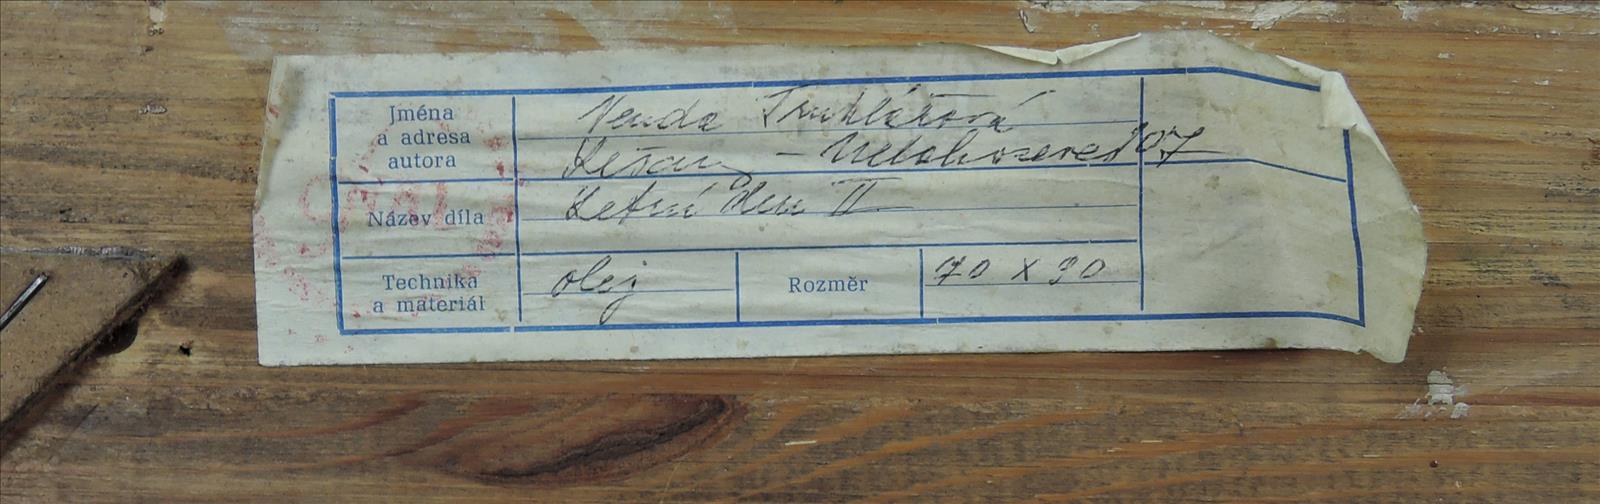 Jména
a adresa
autora
Venda Truhlářová
Lešany - Nelahozeves 107
Název díla
Letní den II
Technika
a materiál
olej
Rozměr
70 x 90